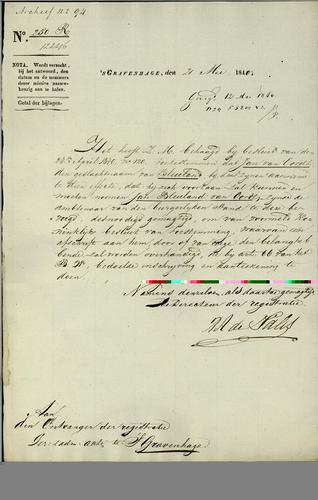 Archief No 94
No. 250 R
12246
NOTA. Wordt verzocht,
bij het antwoord, den
datum en de nummers
dezer missive naauw-
keurig aan te halen.
Getal der bijlagen.
'S GRAVENHAGE, den 21 Mei 1840.
12 Mei 1840
Het heeft Z. M. behaagd by besluit van den
te doen toestemmen dat Jan van Oordt
den geslachtsnaam van Bleuland by den zynen aanneme
in dien effecte, dat hy zich voortaan zal kunnen en
moeten noemen Jan Bleuland van Oordt, zynde de
Ambtenaar van den Burgerlyken Stand te dezen
desnoodig gemagtigd, om van voormeld Ko-
ninklyke besluit van toestemming, waarvan een
afschrift aan hem, door of van wege den belangheb-
bende, zal worden overhandigd, de by art. 66 van het
B. W. bedoelde inschryving en kantteekening te
doen.
Namens denzelven, als daartoe gemagtigd
de Directeur der registratie
Aan
den Ontvanger der registratie
te 's Gravenhage